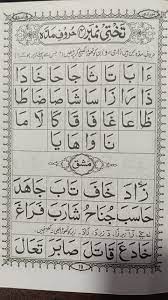 تختی نمبر حروف مدہ
ءَا بَا تَا ثَا جَا حَا خَا دَا
ذَا رَا زَا سَا شَا صَا ضَا طَا
ظَا عَا غَا فَا قَا كَا لَا مَا
نَا وَا هَا يَا
مشق
زَادَ خَافَ تَابَ جَاهَدَ
حَاسَبَ جُنَاحُ شَارَبَ فَرَاغَ
خَادَعَ قَاتَلَ صَابَرَ تَعَالَ